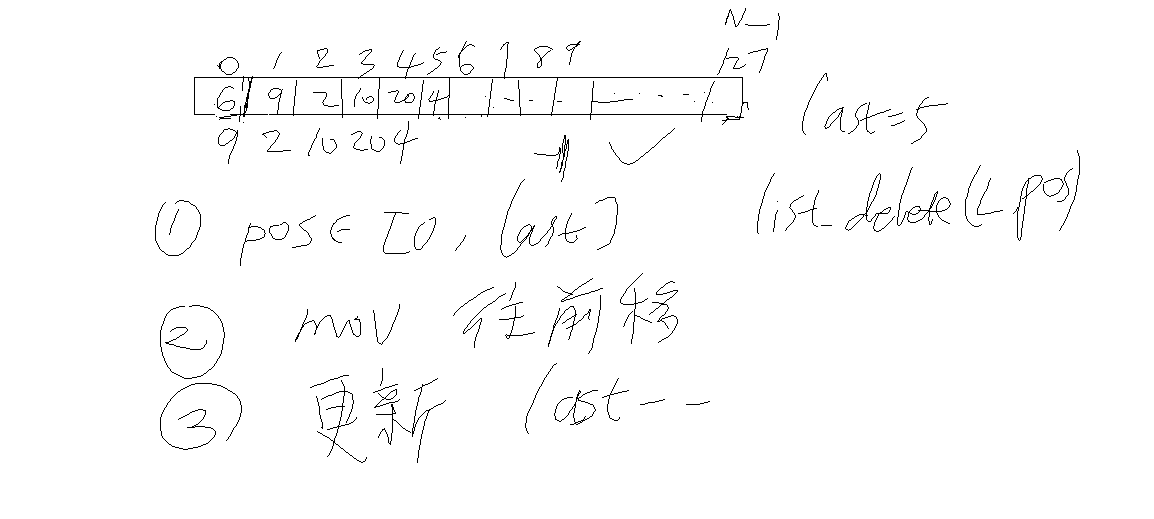 N-1
0 1 2 3 4 5 6 7 8 9 127
6 9 2 10 20 4 ... ...
last=5
9 2 10 20 4
list_delete(L, pos)
① pos∈[0, last]
② mov 往前移
③ 更新 last--